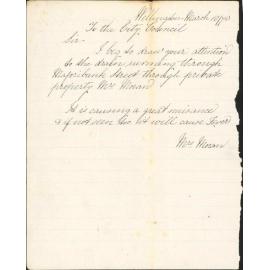 Wellington March 10/93
To the City Council
Sir
I beg to draw your attention
to the drain running through
Majoribank Street through private
property Mrs Moran
It is causing a great nuisance
& if not seen to it will cause Fever
Mrs Moran